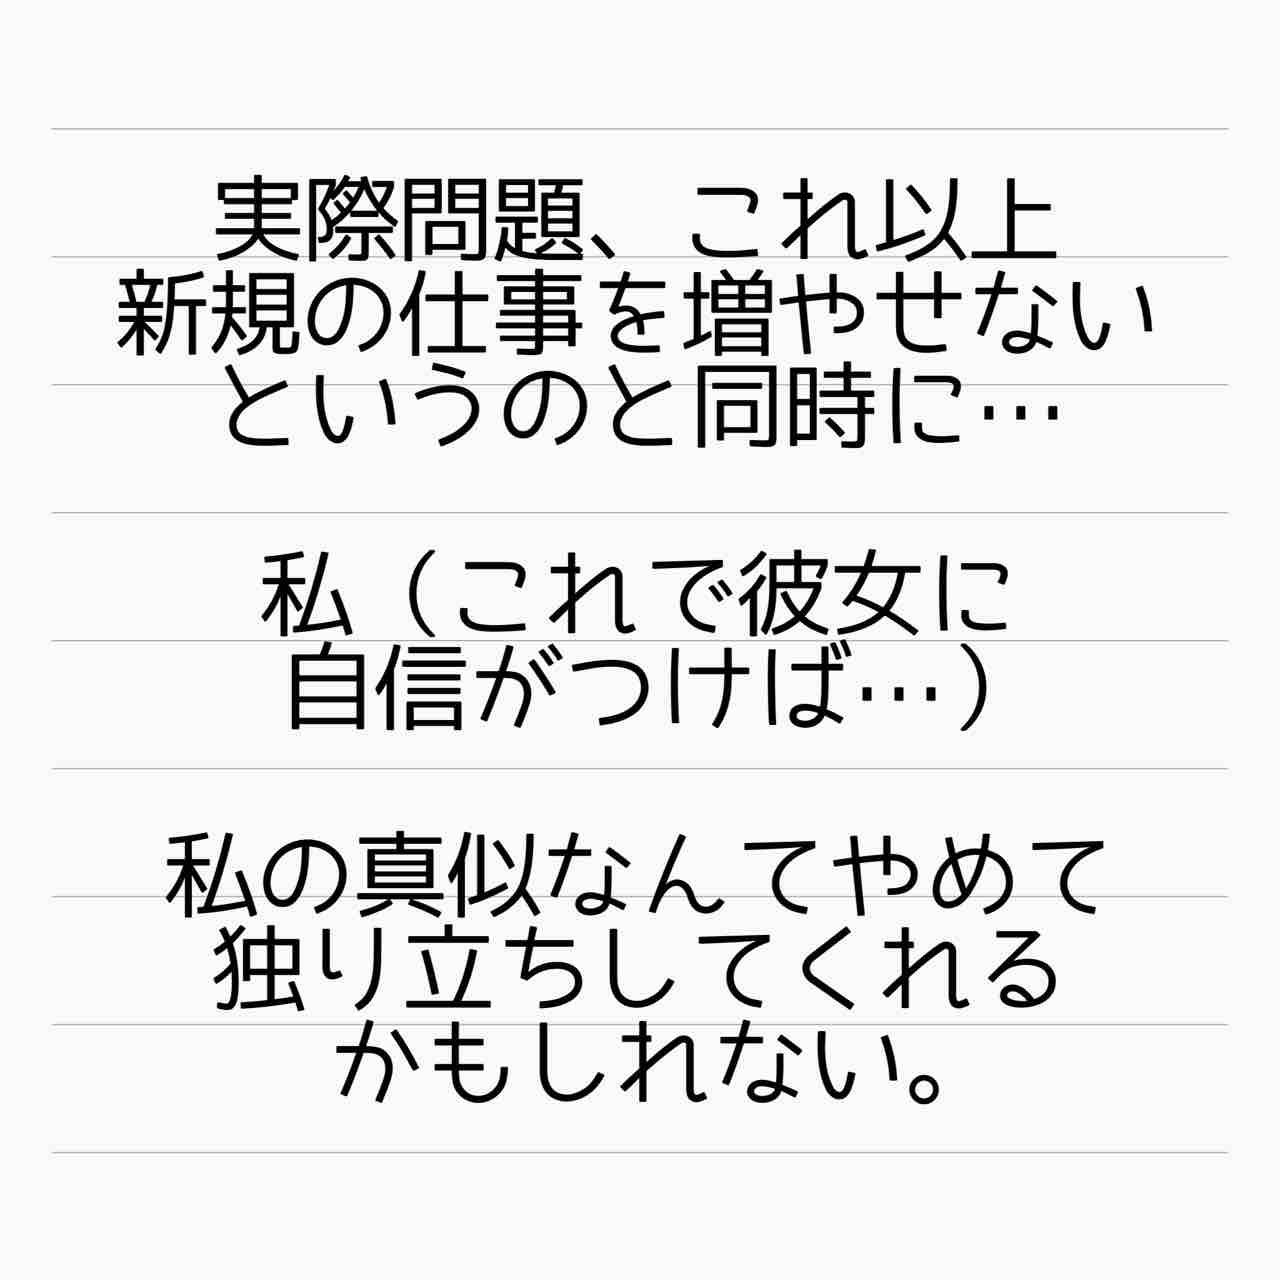 実際問題、これ以上
新規の仕事を増やせない
というのと同時に…
私（これで彼女に
自信がつけば…）
私の真似なんてやめて
独り立ちしてくれる
かもしれない。